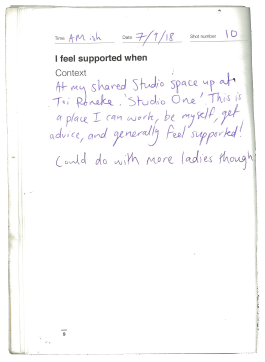 Time AM.ish Date 7/9/18 Shot number 10
I feel supported when
Context
At my shared Studio space up at
Toi Poneke. 'Studio One'. This is
a place I can work, be myself, get
advice, and generally feel supported!
Could do with more ladies though